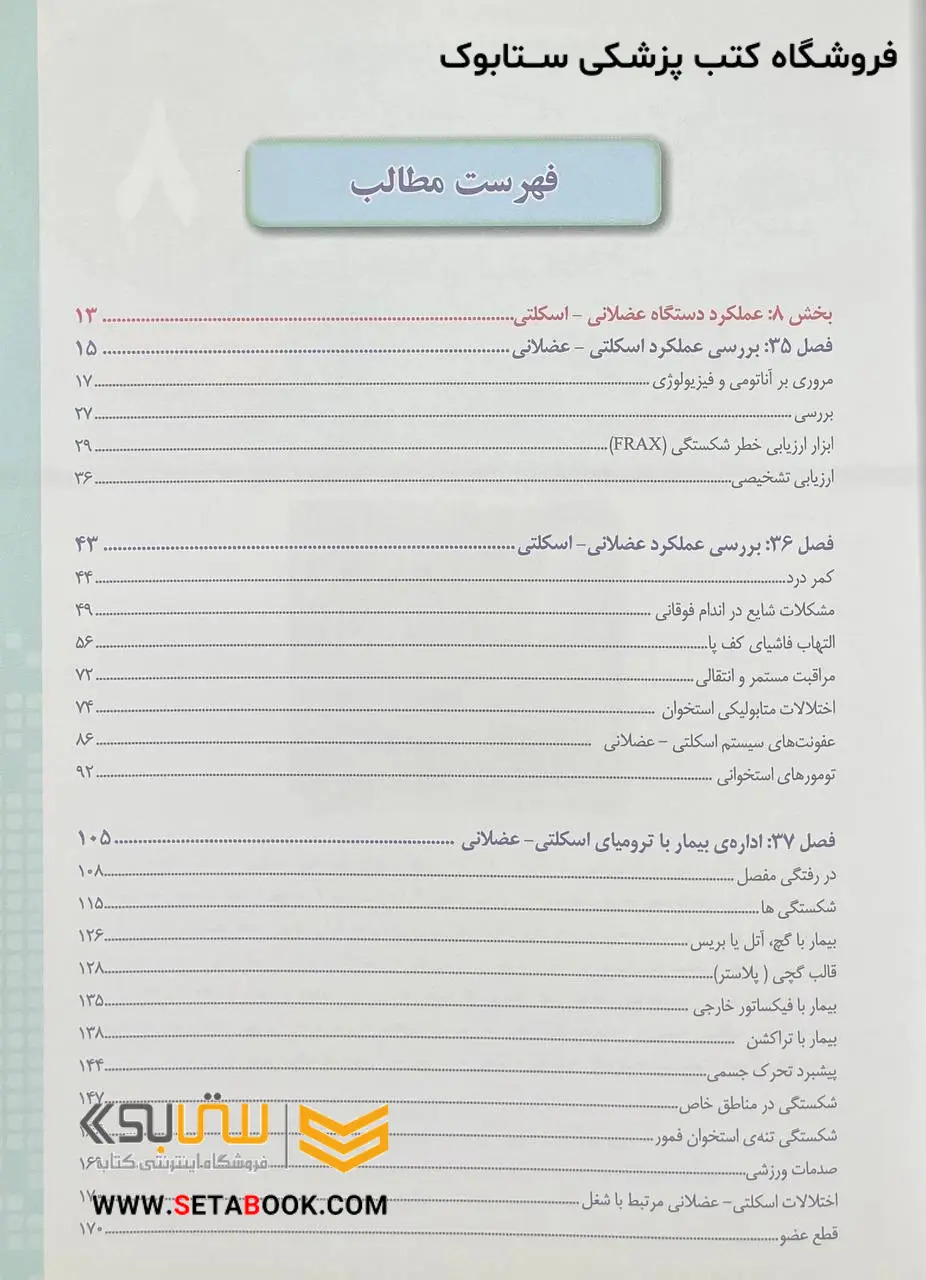 فروشگاه کتب پزشکی ستابوک
فهرست مطالب
بخش ۸: عملکرد دستگاه عضلانی – اسکلتی ۱۳
فصل ۳۵: بررسی عملکرد اسکلتی – عضلانی ۱۵
مروری بر آناتومی و فیزیولوژی ۱۷
بررسی ۲۷
ابزار ارزیابی خطر شکستگی (FRAX) ۲۹
ارزیابی تشخیصی ۳۶
فصل ۳۶: بررسی عملکرد عضلانی– اسکلتی ۴۳
کمر درد ۴۴
مشکلات شایع در اندام فوقانی ۴۹
التهاب فاشیای کف پا ۵۶
مراقبت مستمر و انتقالی ۷۲
اختلالات متابولیکی استخوان ۷۴
عفونت‌های سیستم اسکلتی – عضلانی ۸۶
تومورهای استخوانی ۹۲
فصل ۳۷: اداره‌ی بیمار با ترومیای اسکلتی– عضلانی ۱۰۵
در رفتگی مفصل ۱۰۸
شکستگی ها ۱۱۵
بیمار با گچ، آتل یا بریس ۱۲۶
قالب گچی ( پلاستر) ۱۲۸
بیمار با فیکساتور خارجی ۱۳۵
بیمار با تراکشن ۱۳۸
پیشبرد تحرک جسمی ۱۴۴
شکستگی در مناطق خاص ۱۴۷
شکستگی تنه‌ی استخوان فمور
صدمات ورزشی
اختلالات اسکلتی– عضلانی مرتبط با شغل
قطع عضو ۱۷۰
ستابوک
فروشگاه اینترنتی کتاب
WWW.SETABOOK.COM